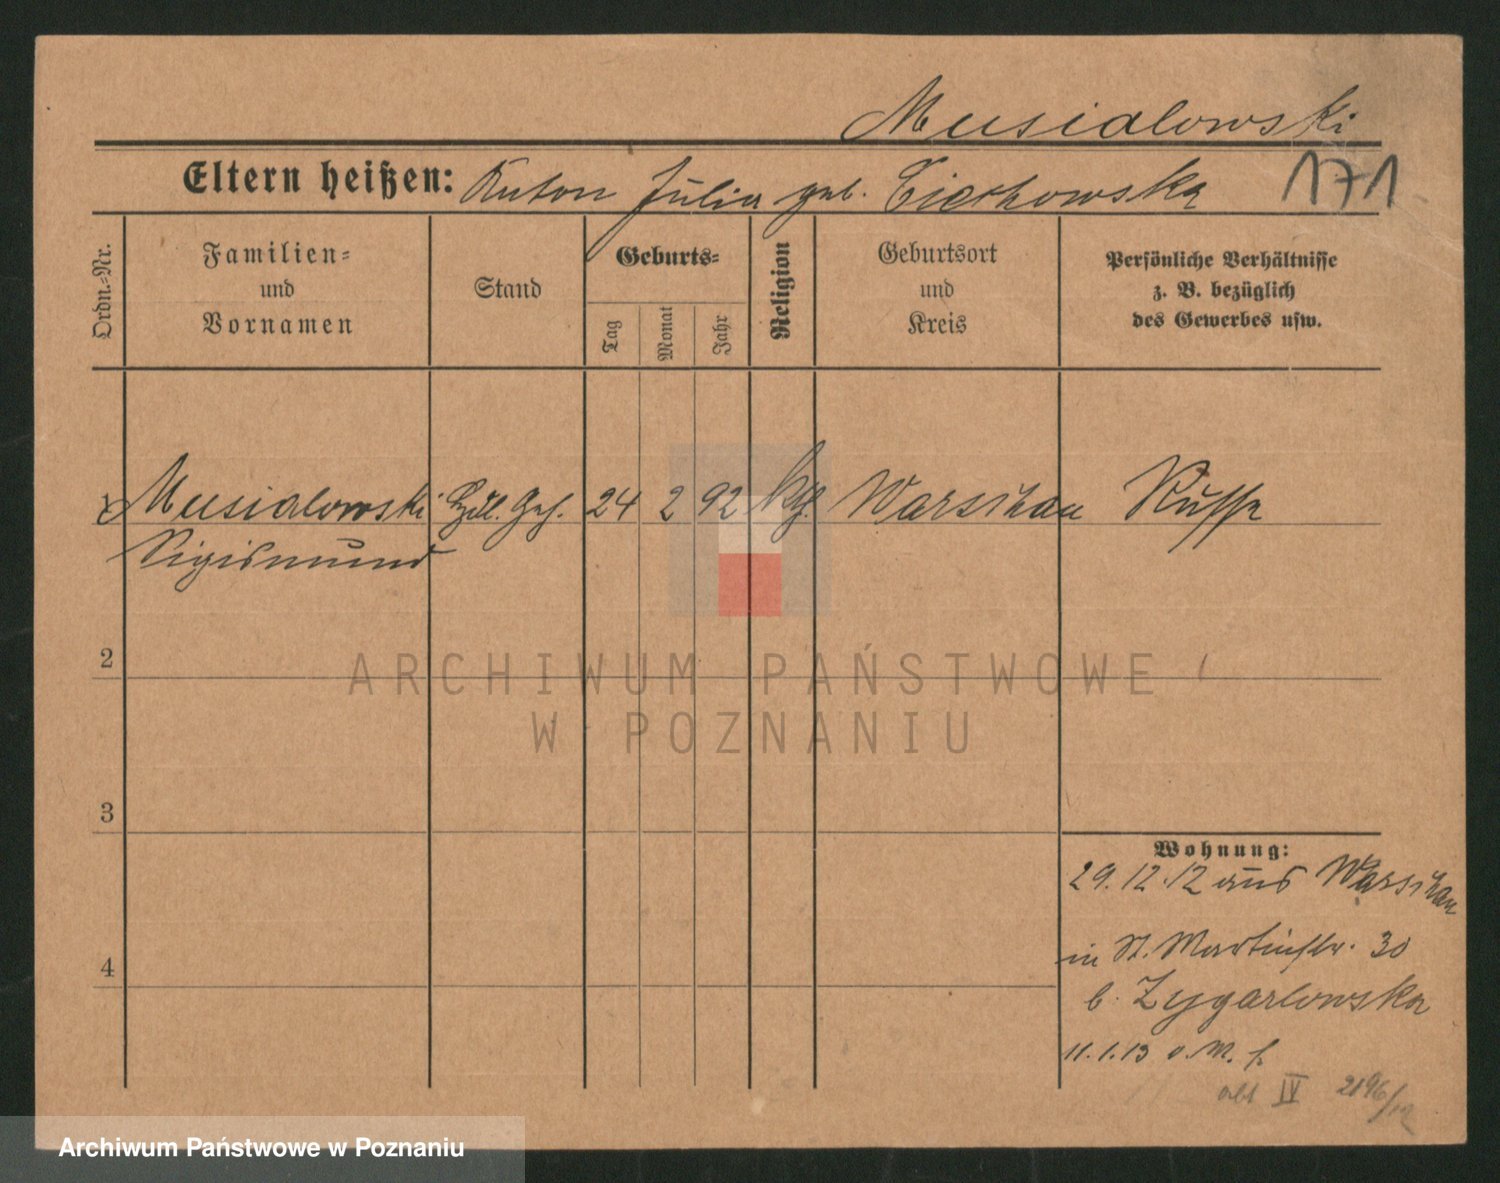 Musialowski
Eltern heißen: Anton Julia geb. Ciechowska
171
Ordn.-Nr.
Familien-
und
Vornamen
Stand
Geburts-
Tag
Monat
Jahr
Religion
Geburtsort
und
Kreis
Persönliche Verhältnisse
z. B. bezüglich
des Gewerbes usw.
1 Musialowski Hdl. Geh. 24 2 92 kth. Warschau Russe
Sigismund
2
3
4
Wohnung:
29.12.12 aus Warschau
in St. Martinstr. 30
b. Zygarlowska
11.1.13 v. M.
abt IV 2196/12
ARCHIWUM PAŃSTWOWE
W POZNANIU
Archiwum Państwowe w Poznaniu